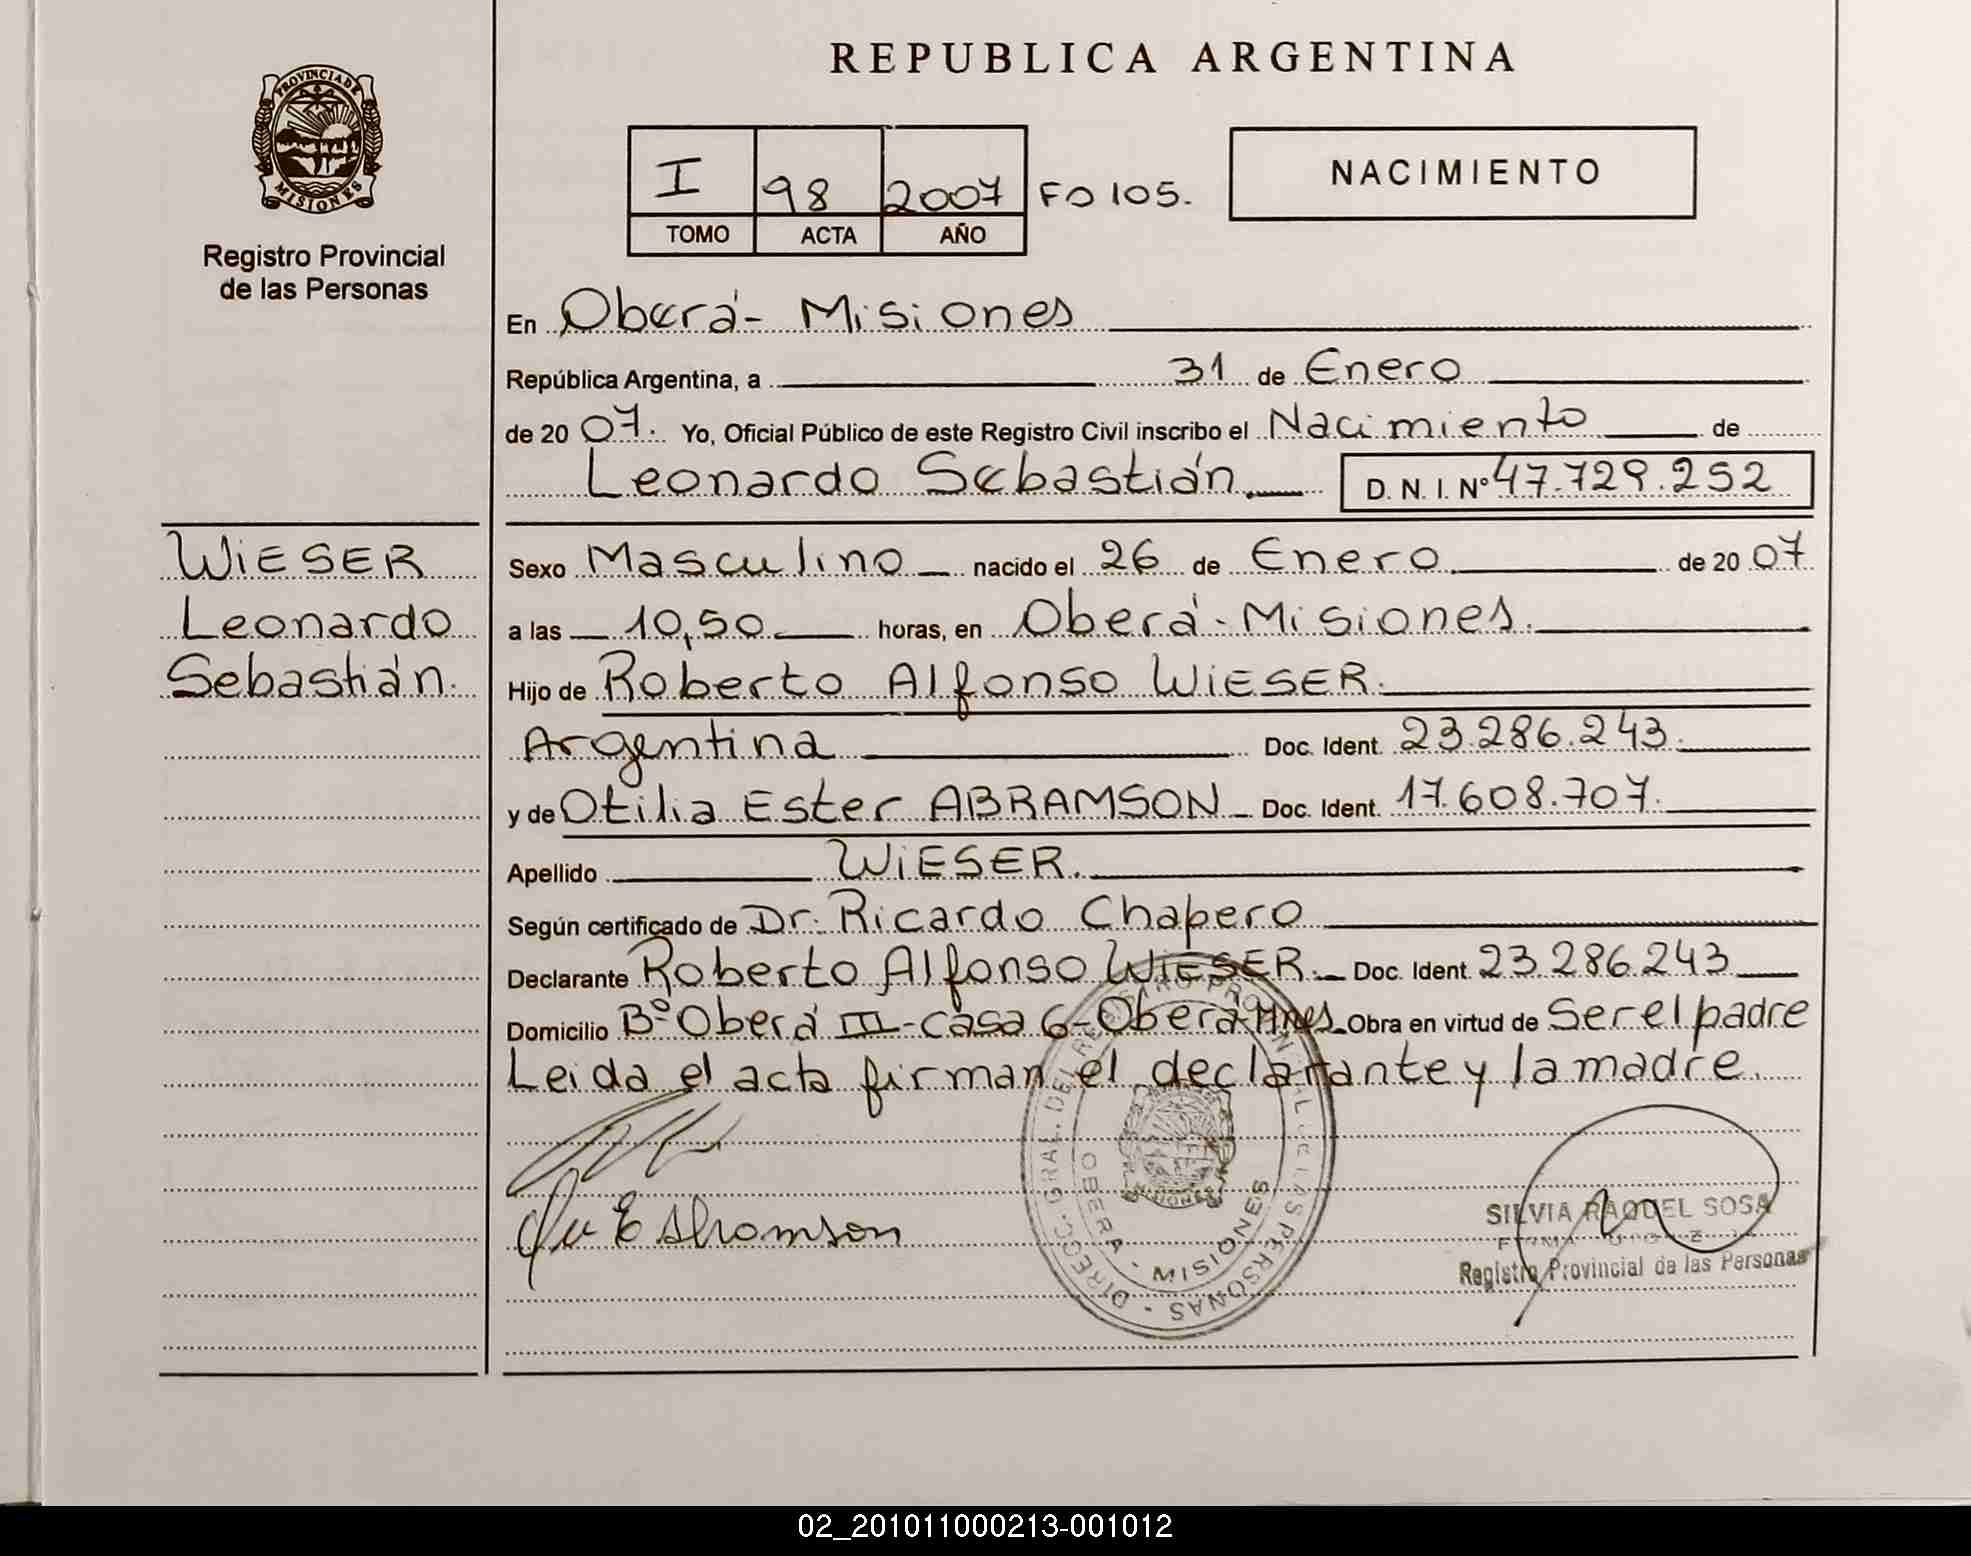 REPUBLICA ARGENTINA
PROVINCIA DE
MISIONES
Registro Provincial
de las Personas
I 98 2007 Fo 105.
TOMO ACTA AÑO
NACIMIENTO
En Oberá - Misiones
República Argentina, a 31 de Enero
de 20 07. Yo, Oficial Público de este Registro Civil inscribo el Nacimiento de
Leonardo Sebastián. D. N. I. Nº 47.729.252
WiESER
Leonardo
Sebastián.
Sexo Masculino nacido el 26 de Enero de 20 07
a las 10,50 horas, en Oberá - Misiones.
Hijo de Roberto Alfonso WiESER.
Argentina Doc. Ident. 23.286.243.
y de Otilia Ester ABRAMSON Doc. Ident. 17.608.707.
Apellido WiESER.
Según certificado de Dr. Ricardo Chapero
Declarante Roberto Alfonso WiESER. Doc. Ident. 23.286.243
Domicilio Bº Oberá III - casa 6 - Oberá Mnes. Obra en virtud de Ser el padre
Leida el acta firman el declarante y la madre.
DIRECC. GRAL. DEL REGISTRO PROVINCIAL DE LAS PERSONAS
OBERA - MISIONES
MISIONES
E Abramson
SILVIA RAQUEL SOSA
FIRMA
Registro Provincial de las Personas
02_201011000213-001012